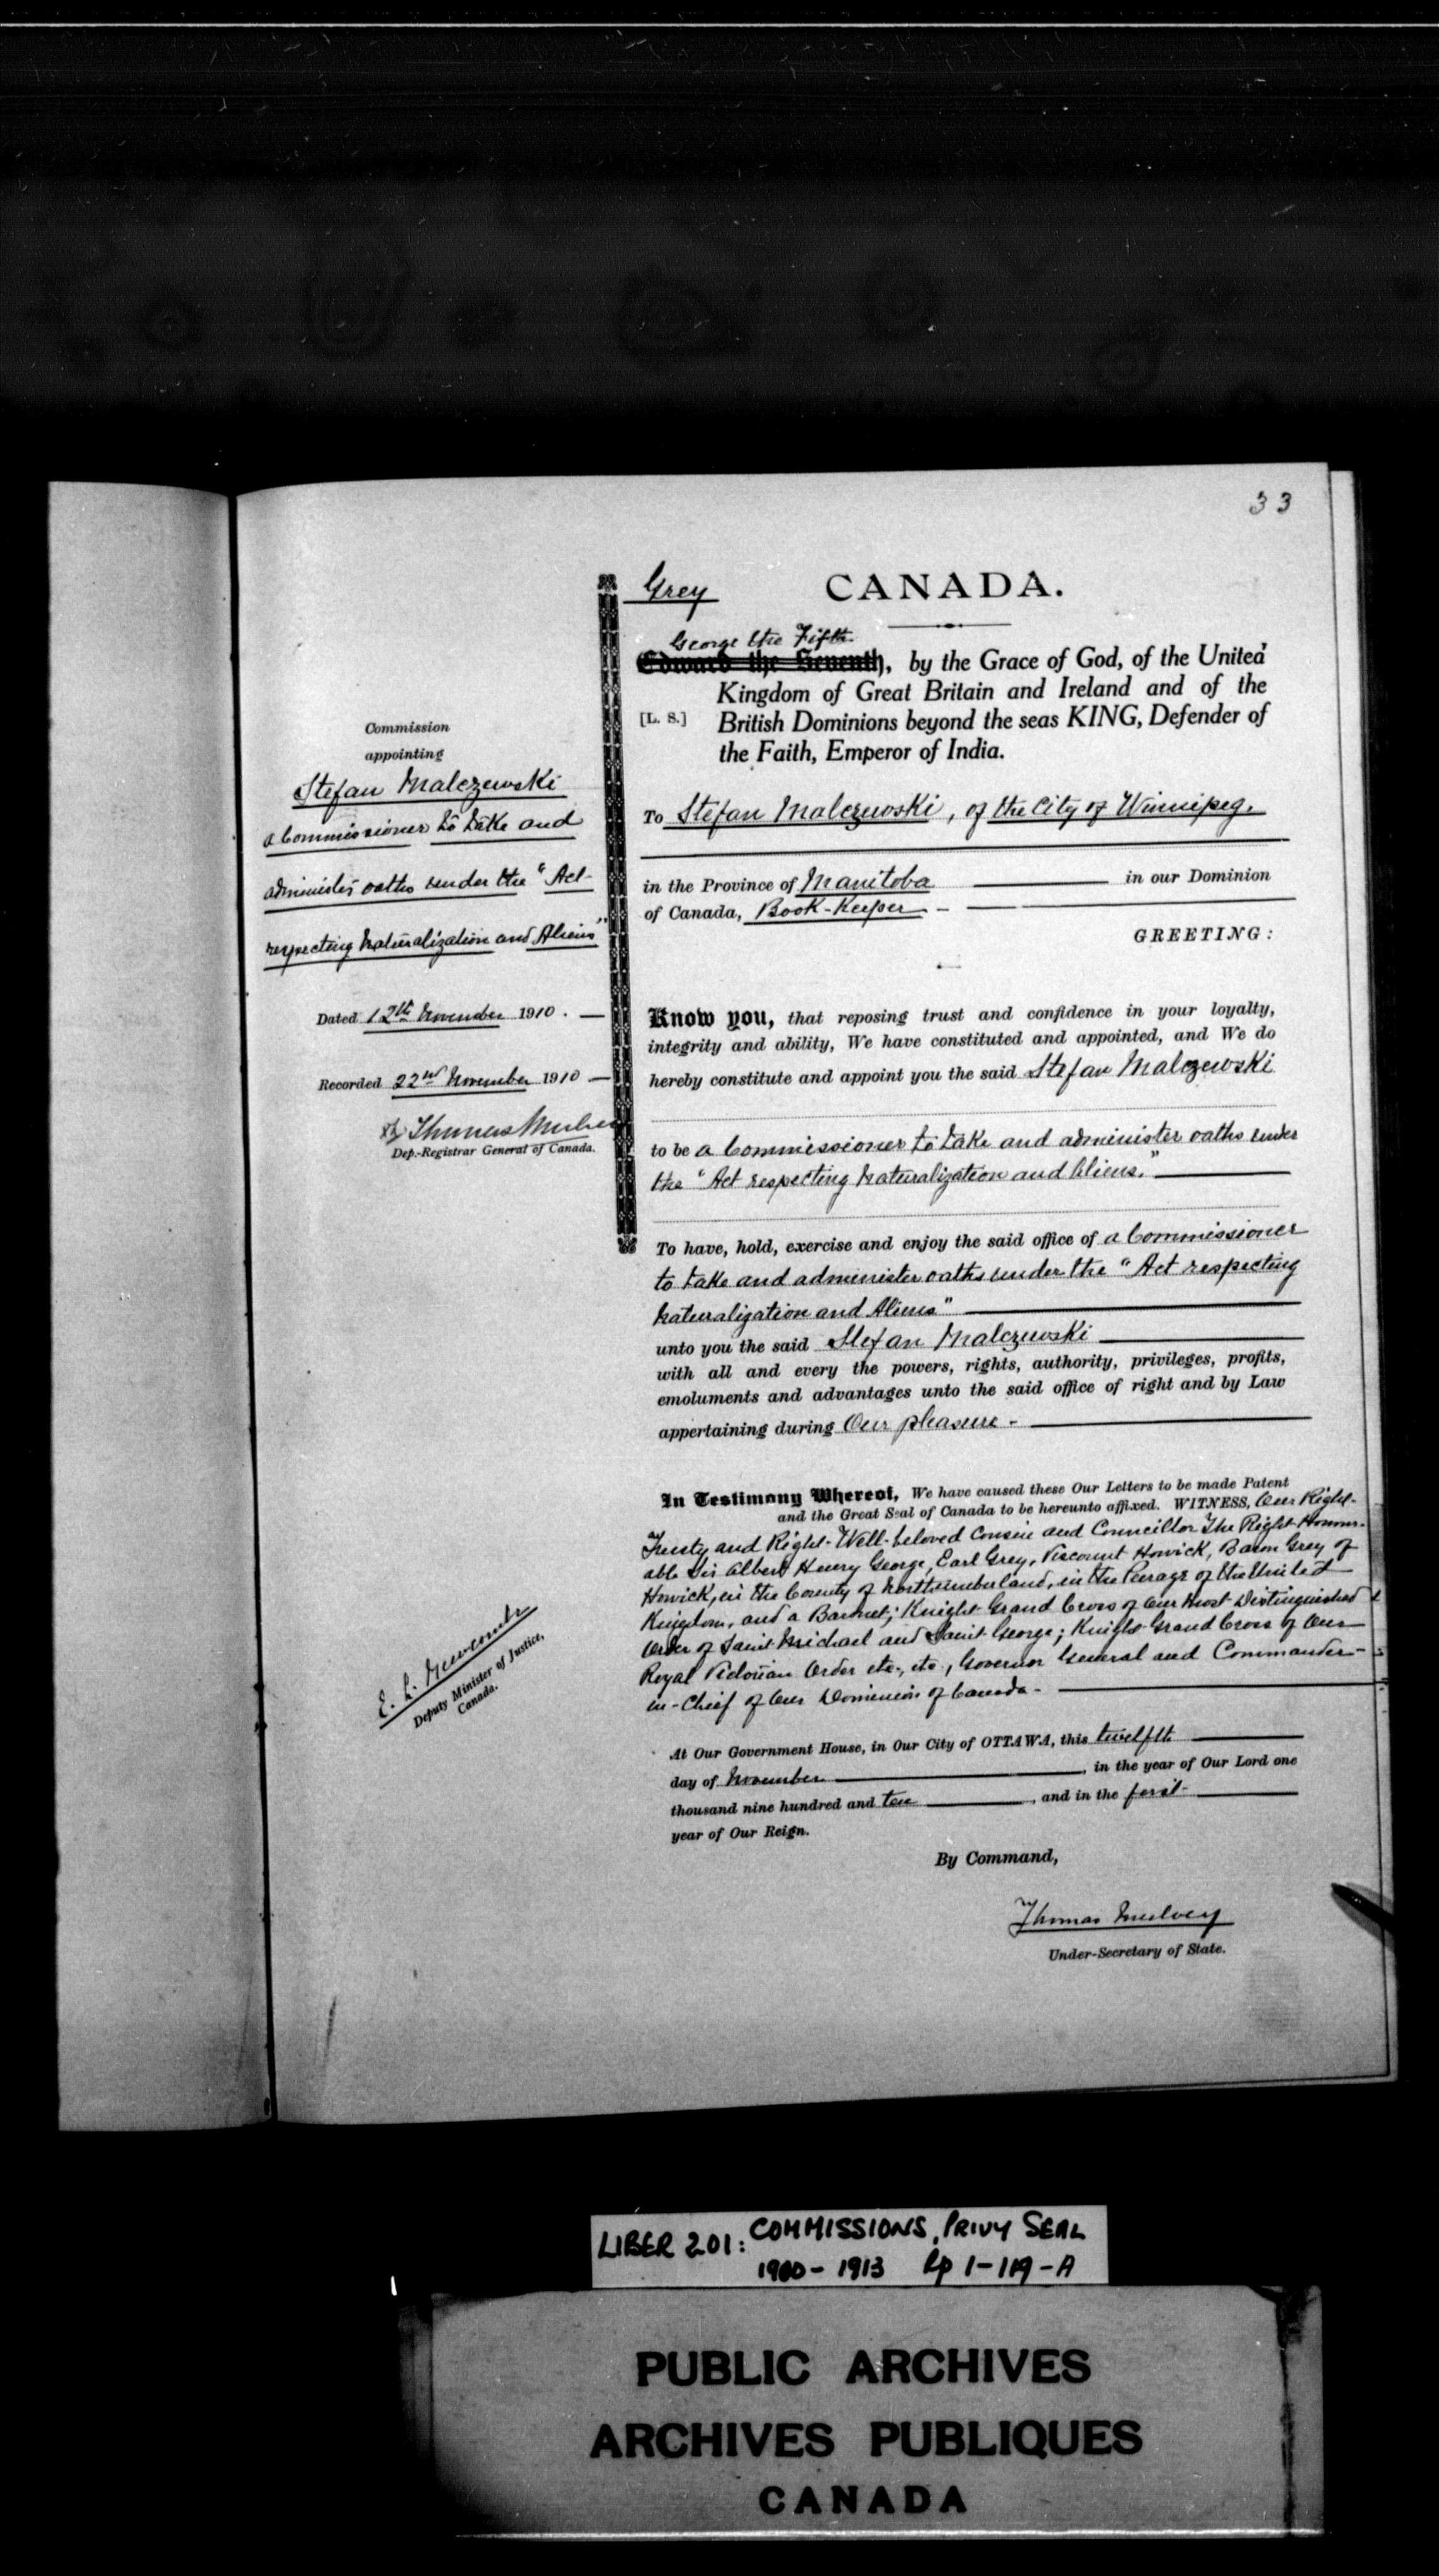 33
Grey
CANADA.
George the Fifth
Edward the Seventh, by the Grace of God, of the United
Kingdom of Great Britain and Ireland and of the
[L. S.] British Dominions beyond the seas KING, Defender of
the Faith, Emperor of India.
Commission
appointing
Stefan Malczewski
a Commissioner to take and
administer oaths under the "Act
respecting Naturalization and Aliens"
Dated 12th November 1910.
Recorded 22nd November 1910
Thomas Mulvey
Dep.-Registrar General of Canada.
To Stefan Malczewski, of the City of Winnipeg.
in the Province of Manitoba in our Dominion
of Canada, Book-Keeper
GREETING:
Know you, that reposing trust and confidence in your loyalty,
integrity and ability, We have constituted and appointed, and We do
hereby constitute and appoint you the said Stefan Malczewski
to be a Commissioner to take and administer oaths under
the "Act respecting Naturalization and Aliens."
To have, hold, exercise and enjoy the said office of a Commissioner
to take and administer oaths under the "Act respecting
Naturalization and Aliens"
unto you the said Stefan Malczewski
with all and every the powers, rights, authority, privileges, profits,
emoluments and advantages unto the said office of right and by Law
appertaining during Our pleasure -
In Testimony Whereof, We have caused these Our Letters to be made Patent
and the Great Seal of Canada to be hereunto affixed. WITNESS, Our Right-
Trusty and Right-Well-beloved Cousin and Councillor The Right Honour-
able Sir Albert Henry George, Earl Grey, Viscount Howick, Baron Grey of
Howick, in the County of Northumberland, in the Peerage of the United
Kingdom, and a Baronet; Knight Grand Cross of Our Most Distinguished
Order of Saint Michael and Saint George; Knight Grand Cross of Our
Royal Victorian Order etc., etc., Governor General and Commander-
in-Chief of Our Dominion of Canada -
E. L. Newcombe
Deputy Minister of Justice,
Canada.
At Our Government House, in Our City of OTTAWA, this twelfth
day of November, in the year of Our Lord one
thousand nine hundred and ten, and in the first
year of Our Reign.
By Command,
Thomas Mulvey
Under-Secretary of State.
LIBER 201: COMMISSIONS, PRIVY SEAL
1900-1913 pp 1-119-A
PUBLIC ARCHIVES
ARCHIVES PUBLIQUES
CANADA